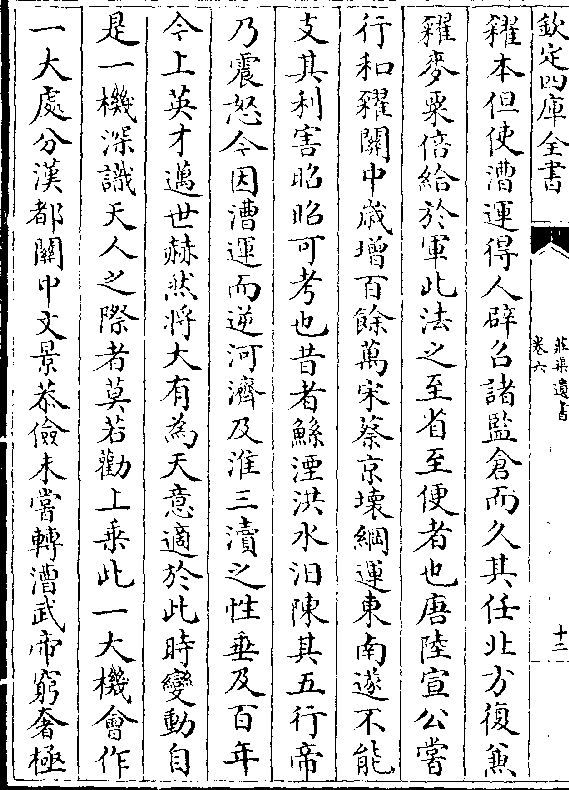 欽定四庫全書
莊渠遺書
卷六
十二
糴本但使漕運得人辟召諸監倉而久其任北方復兼
糴麥粟倍給於軍此法之至省至便者也唐陸宣公嘗
行和糴關中歳增百餘萬宋蔡京壊綱運東南遂不能
支其利害昭昭可考也昔者鯀湮洪水汨陳其五行帝
乃震怒今因漕運而逆河濟及淮三瀆之性垂及百年
今上英才邁世赫然将大有為天意適於此時變動自
是一機深識天人之際者莫若勸上乗此一大機會作
一大處分漢都關中文景恭儉未嘗轉漕武帝窮奢極